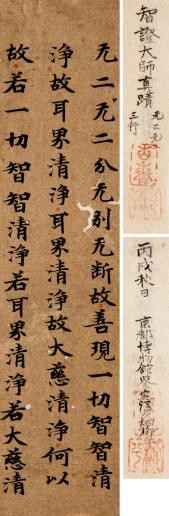 无二无二分无别无断故善現一切智智清
淨故耳界清淨耳界清淨故大慈清淨何以
故若一切智智清淨若耳界清淨若大慈清
智證大師真蹟
无二无
三行
丙戌秋日
京都博物館